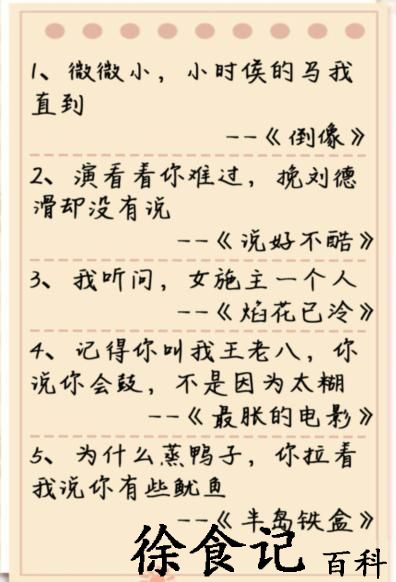 1、微微小，小时侯的马我
直到
--《倒像》
2、演看着你难过，挽刘德
滑却没有说
--《说好不酷》
3、我听问，女施主一个人
--《焰花已冷》
4、记得你叫我王老八，你
说你会鼓，不是因为太糊
--《最胀的电影》
5、为什么蒸鸭子，你拉看
我说你有些鱿鱼
--《半岛铁盒》
徐食记百科